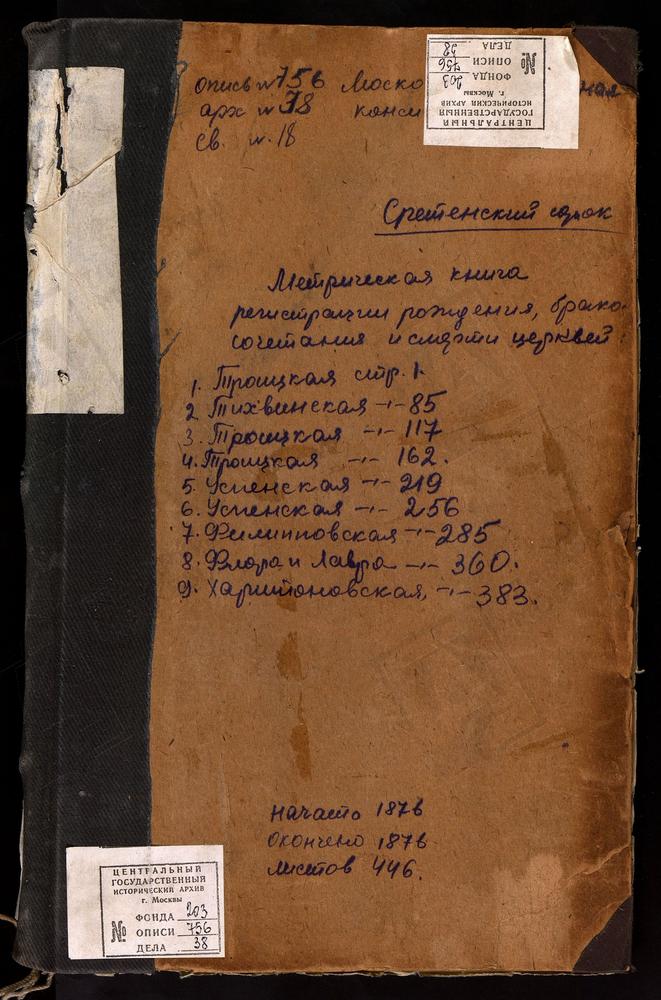 опись № 756 Моско
арх № 38 конси
св. № 18
ЦЕНТРАЛЬНЫЙ
ГОСУДАРСТВЕННЫЙ
ИСТОРИЧЕСКИЙ АРХИВ
г. Москвы
ФОНДА 203
№ ОПИСИ 756
ДЕЛА 38
Сретенский сорок
Метрическая книга
регистрации рождения, брако-
сочетания и смерти церквей:
1. Троицкая стр. 1.
2. Тихвинская -"- 85
3. Троицкая -"- 117
4. Троицкая -"- 162.
5. Успенская -"- 219
6. Успенская -"- 256
7. Филипповская -"- 285
8. Флора и Лавра -"- 360.
9. Харитоновская, -"- 383.
начато 1876
Окончено 1876
листов 446.
ЦЕНТРАЛЬНЫЙ
ГОСУДАРСТВЕННЫЙ
ИСТОРИЧЕСКИЙ АРХИВ
г. Москвы
ФОНДА 203
№ ОПИСИ 756
ДЕЛА 38